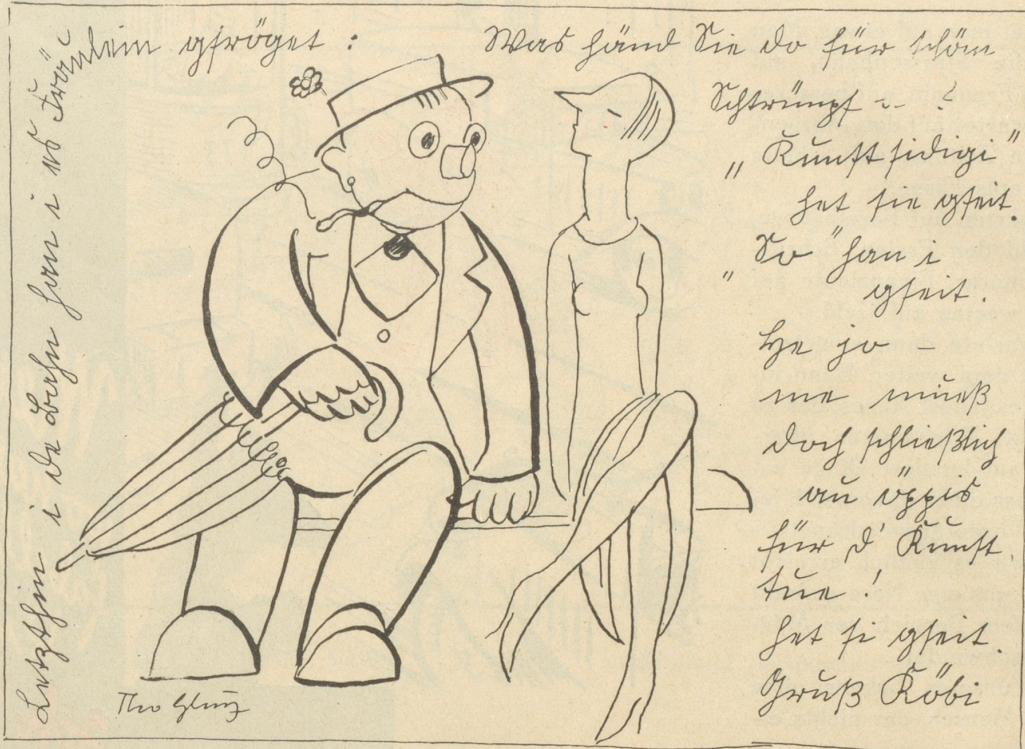 Letzthin i de Bahn han i es Fräulein gfröget :
Was händ Sie do für schöni
Schtrümpf -- ?
„Kunstsidigi"
het sie gseit.
"So" han i
gseit.
He jo –
me mueß
doch schließlich
au öppis
für d' Kunst
tue !
het si gseit.
Gruß Köbi
Theo Glinz